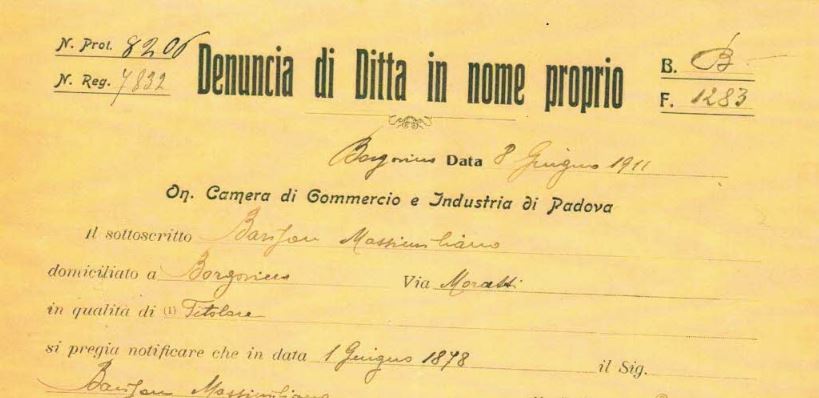 N. Prot. 8206
Denuncia di Ditta in nome proprio
B. B
N. Reg. 7832
F. 1283
Borgoricco Data 8 Giugno 1911
On. Camera di Commercio e Industria di Padova
Il sottoscritto Barizon Massimiliano
domiciliato a Borgoricco Via Moratti
in qualità di (1) Titolare
si pregia notificare che in data 1 Giugno 1878 il Sig.
Barizon Massimiliano